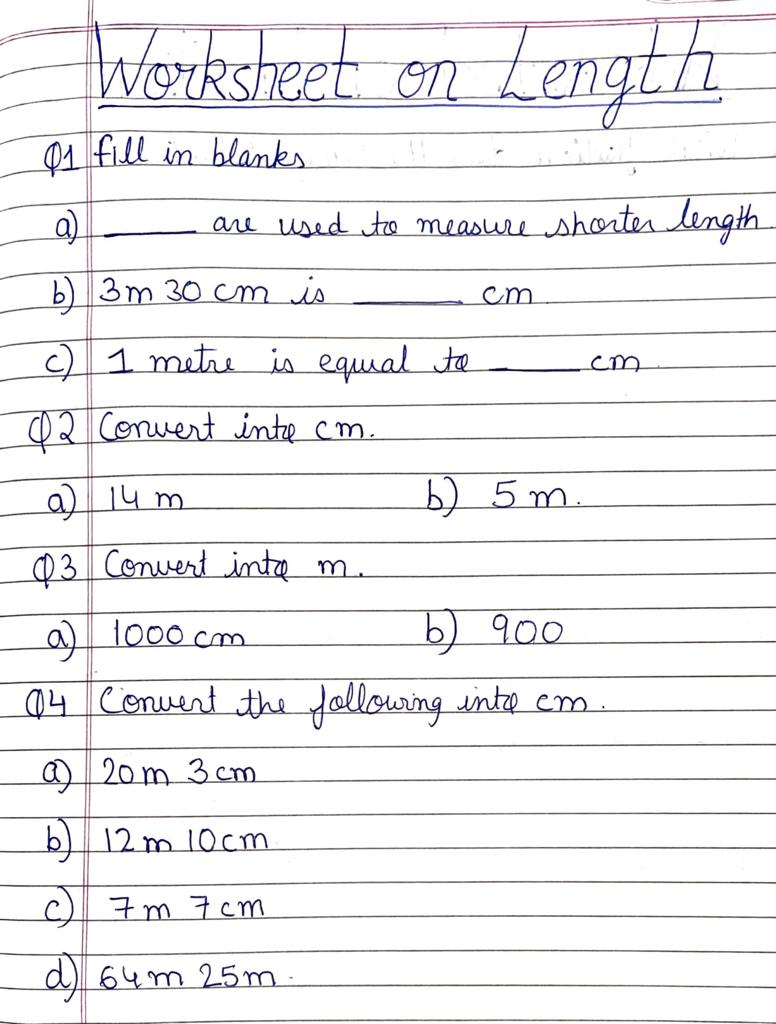 Worksheet on Length
Q1 fill in blanks
a) ______ are used to measure shorter length
b) 3m 30 cm is ______ cm
c) 1 metre is equal to ______ cm
Q2 Convert into cm.
a) 14 m b) 5 m.
Q3 Convert into m.
a) 1000 cm b) 900
Q4 Convert the following into cm.
a) 20m 3cm
b) 12m 10cm
c) 7m 7cm
d) 64m 25m.